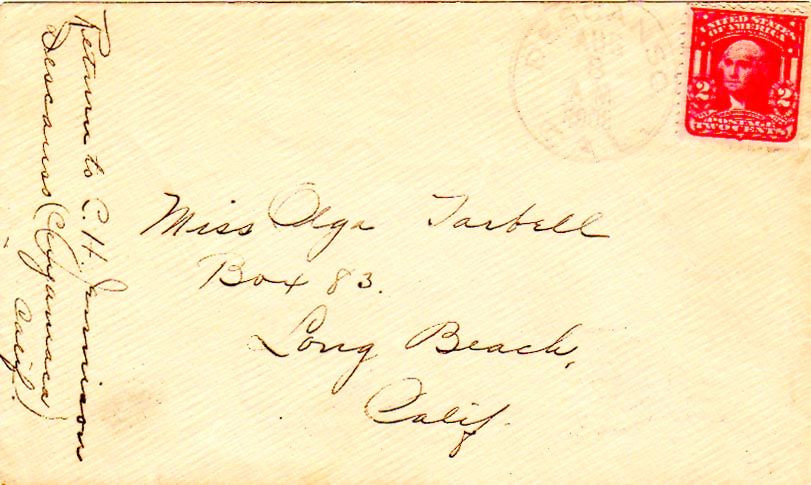 Return to C. H. Jennison
Descanso (Cuyamaca)
Calif.
DESCANSO
AUG
8
A.M.
CAL.
UNITED STATES
OF AMERICA
2 2
POSTAGE
TWO CENTS
Miss Olga Tarbell
Box 83.
Long Beach,
Calif.